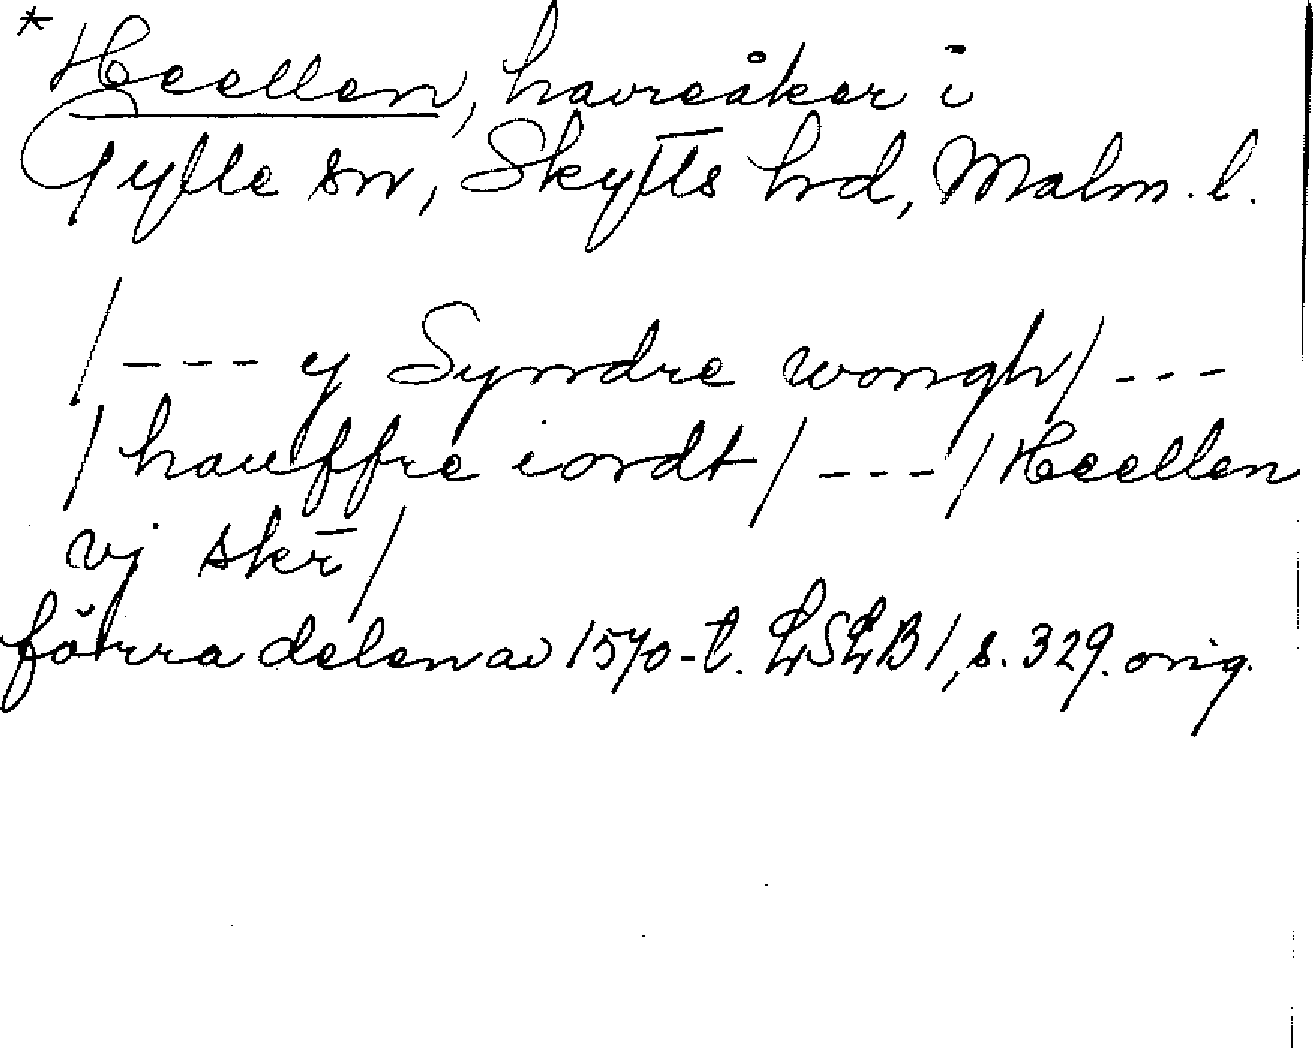 * Heellen, havreåker i
Gylle sn, Skytts hd, Malm. l.
/--- y Syndre wongh/ ---
/hauffre iordt/ ---/Heellen
vj skr̄/
förra delen av 1570-t. LSLB 1, s. 329. orig.